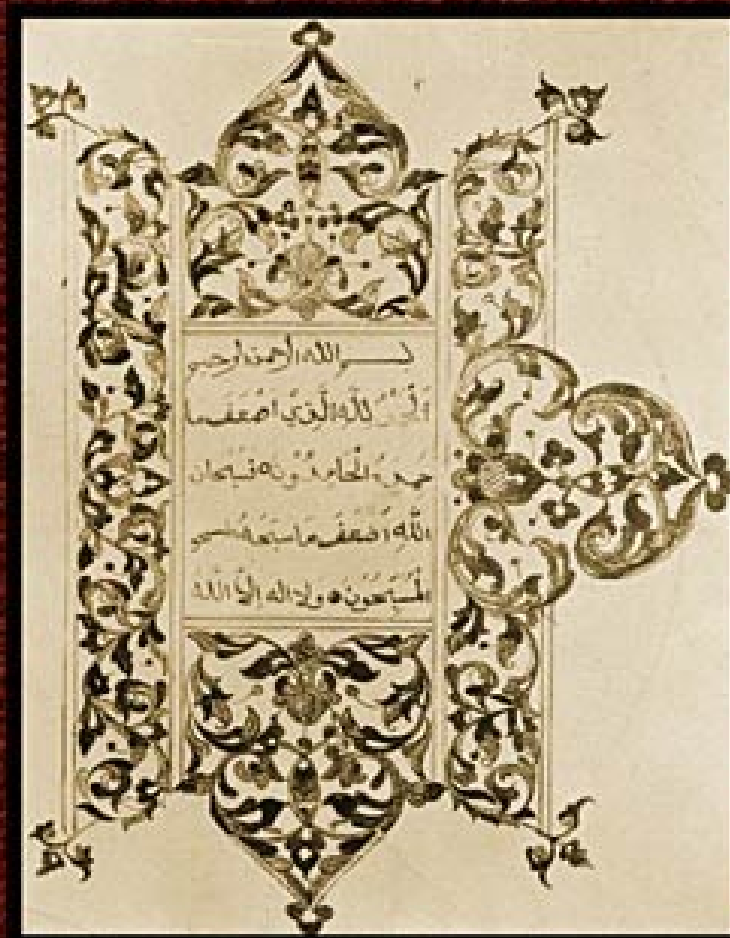 بسم الله الرحمن الرحيم
اَلْحَمْدُ لِلّهِ الَّذِي اَضْعَفَ مَا
حَمِدَهُ الْحَامِدُونَ فَسُبْحَانَ
اللّهِ اَضْعَفَ مَا سَبَّحَهُ
الْمُسَبِّحُونَ ولا اله اِلاَّ اللّه